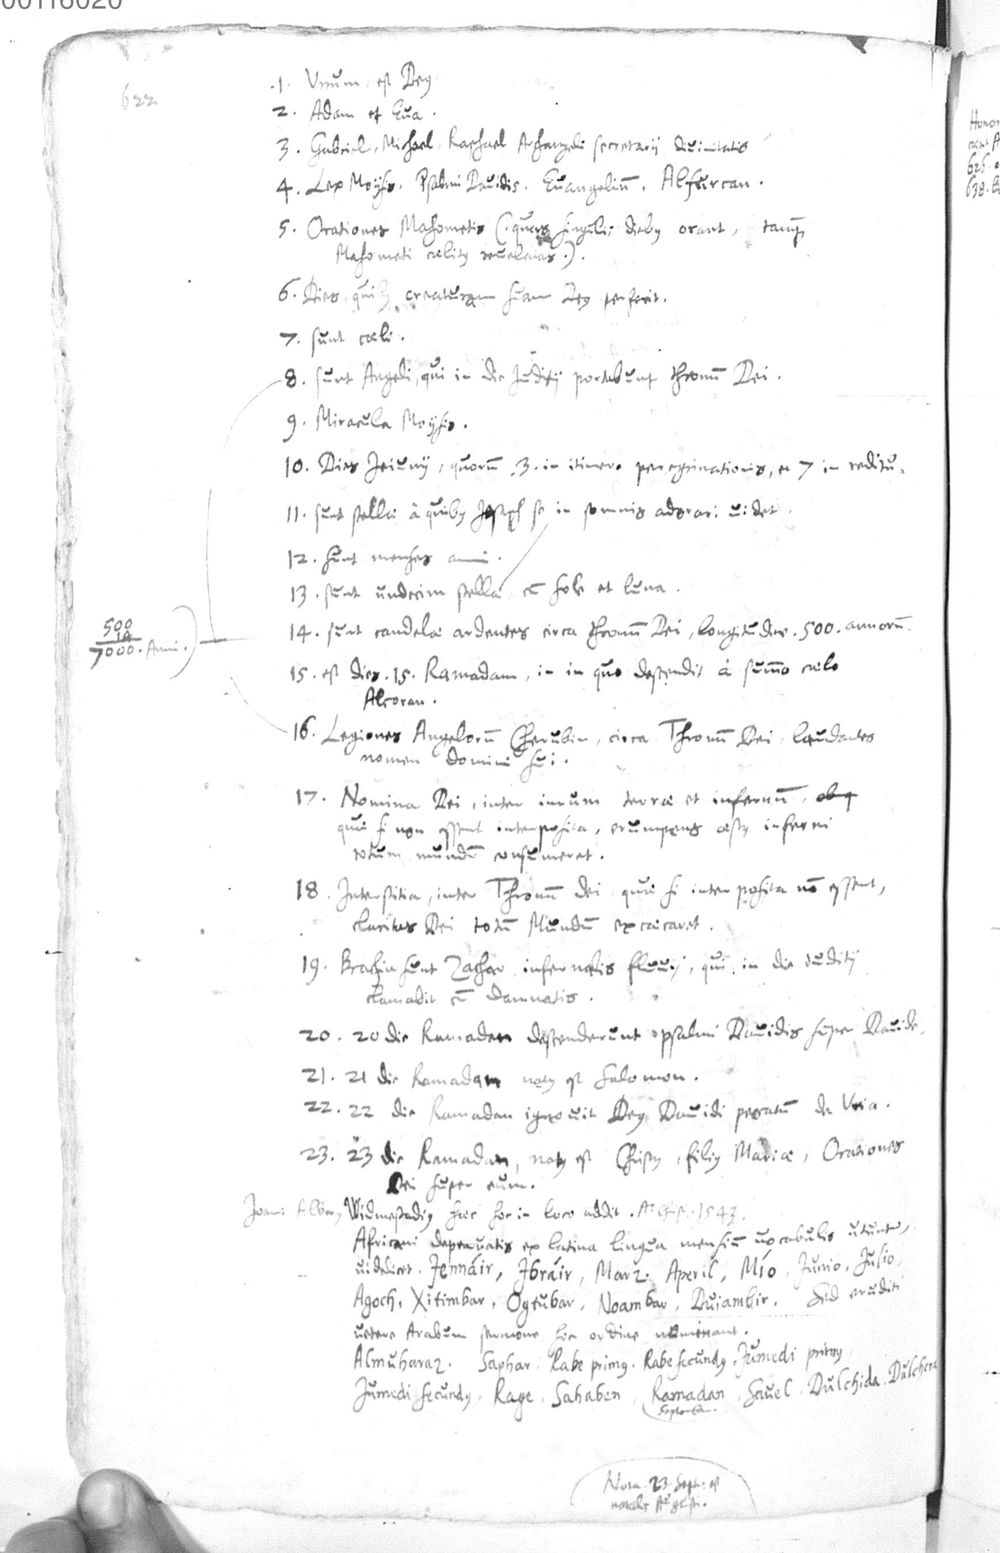 00116020
622
.1. Vnum est Deq
2. Adam et Eua.
3. Gabriel, Michael, Raphael Archangeli secretarij diuinitatis
4. Lex Moysis. Psalmi Dauidis. Euangeliũ. Alfurcan.
5. Orationes Mahometis (quas singulis dieby orant, tamq̃
Mahometi celity reuelatas.).
6. Dies, quib9 creaturam suam Deq perfecit.
7. sunt cœli.
8. sunt Angeli, qui in die Judicij portabunt thronũ Dei.
9. Miracula Moysis.
10. Dies Jeiunij, quorũ .3. in itinere peregrinationis, et 7 in reditu.
11. sunt stellæ à quiby Joseph se in somnis adorari uidet.
12. sunt menses anni.
13. sunt undecim stellæ cũ sole et luna.
14. sunt candelæ ardentes circa thronũ Dei, longitudine .500. annorũ.
500
14
7000. Anni.
15. est dies .15. Ramadam, in quo descendit à sum̃o cælo
Alcoran.
16. Legiones Angelorũ Cherubin, circa Thronũ Dei, laudantes
nomen domini sui.
17. Nomina Dei, inter imum terræ et infernũ,
quæ si non essent interposita, erumpens æsty inferni
totum mundũ consumeret.
18. Interstitia, inter Thronũ dei, quæ si interposita nõ essent,
claritas Dei totũ Mundũ excæcaret.
19. Brachia sunt Zachar infernalis fluuij, qui in die iudicij
clamabit cũ damnatis.
20. 20 die Ramadan descenderunt psalmi Dauidis super Dauide.
21. 21 die Ramadam naty est Salomon.
22. 22 die Ramadan ignouit Deq Dauidi peccatũ de Vria.
23. 23 die Ramadan, naty est Christy, filiy Mariæ, Orationes
Dei super eum.
Joan: Alberty Widmestadiy hæc hoc in loco addit. 1543.
Africani deprauatis ex latina lingua mensiũ uocabulis utuntur,
uidelicet. Jennáir, Jbráir, Marz. Aperil, Mío, Junio, Julio,
Agoch, Xitimbar, Ogtubar, Noambar, Duiambir. Sed eruditi
uetere Arabum sermone hoc ordine nominant.
Almuharaz. Saphar. Rabe primy. Rabe secundy, Jumedi primy
Jumedi secundy. Rage. Sahaben, Ramadan, Sauel, Dulchida, Dulchera
Septemb.
Nota. 23. Sept: est
natalis August.